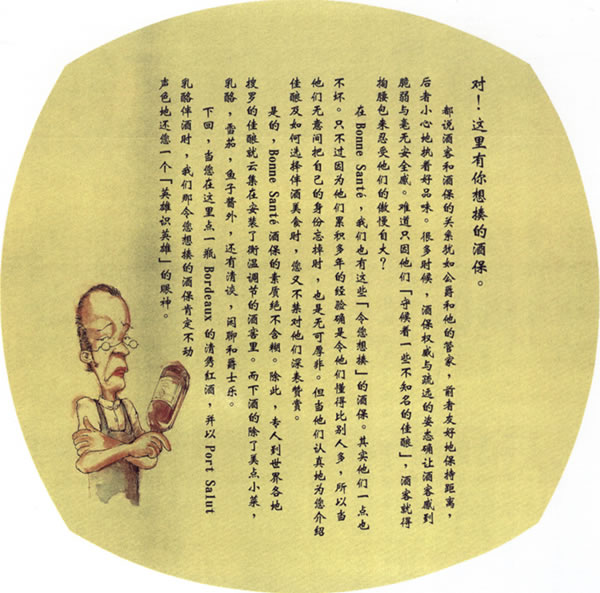 对！这里有你想揍的酒保。
都说酒客和酒保的关系犹如公爵和他的管家，前者友好地保持距离，
后者小心地执着好品味。很多时候，酒保权威与疏远的姿态确让酒客感到
脆弱与毫无安全感。难道只因他们「守候着一些不知名的佳酿」，酒客就得
掏腰包来忍受他们的傲慢自大？
在 Bonne Santé，我们也有这些「令您想揍」的酒保。其实他们一点也
不坏。只不过因为他们累积多年的经验确是令他们懂得比别人多，所以当
他们无意间把自己的身份忘掉时，也是无可厚非。但当他们认真地为您介绍
佳酿及如何选择伴酒美食时，您又不禁对他们深表赞赏。
是的，Bonne Santé 酒保的素质绝不含糊。除此，专人到世界各地
搜罗的佳酿就云集在安装了衡温调节的酒窖里。而下酒的除了美点小菜，
乳酪，雪茄，鱼子酱外，还有清谈，闲聊和爵士乐。
下回，当您在这里点一瓶 Bordeaux 的清秀红酒，并以 Port Salut
乳酪伴酒时，我们那令您想揍的酒保肯定不动
声色地还您一个「英雄识英雄」的眼神。